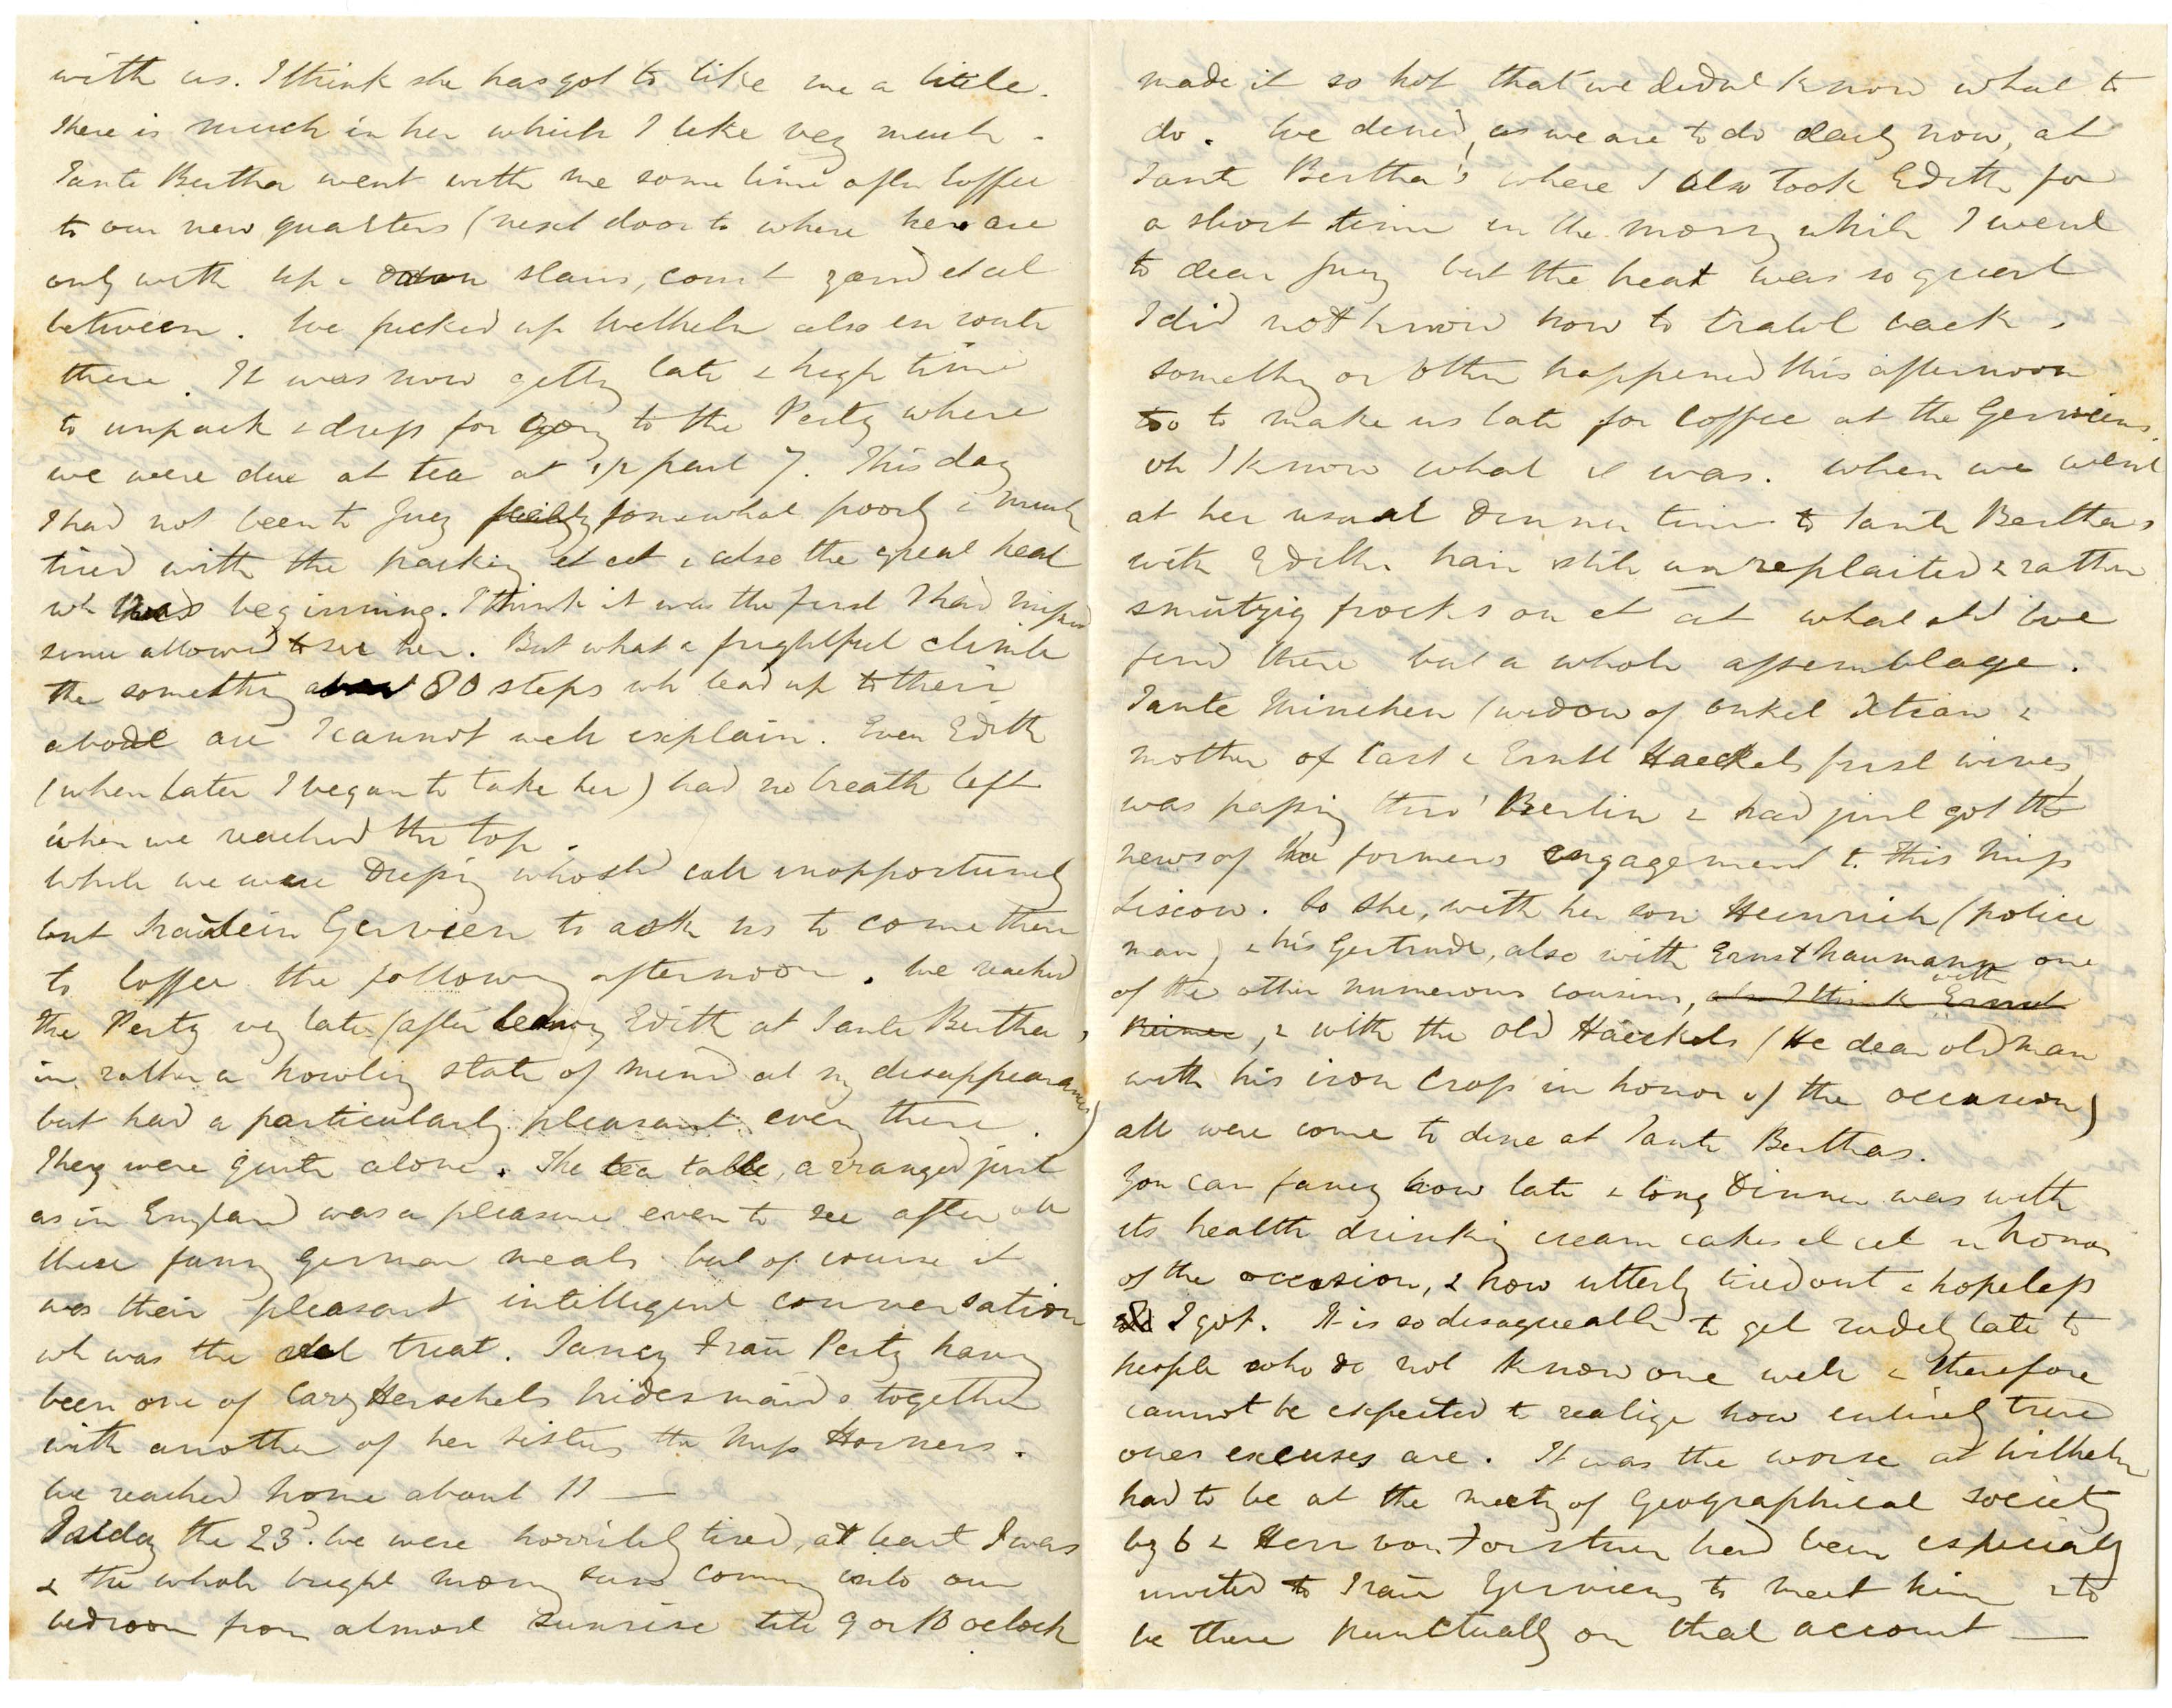 with us. I think she has got to like me a little.
There is much in her which I like very much.
Tante Bertha went with me some time after Coffee
to our new quarters (next door to where here are
only with up & down stairs, court yard et cet
between. We picked up Wilhelm also en route
there. It was now gettg late & high time
to unpack & dress for going to the Pertz where
we were due at tea at 1/2 past 7. This day
I had not been to Guey feeling somewhat poorly & much
tired with the packing et cet & also the great heat
wh was beginning. I think it was the first I had missed
since allowed to see her. But what a frightful climb
the something about 80 steps wh lead up to their
abode are I cannot well explain. Even Edith
(when later I began to take her) had no breath left
when we reached the top.
While we were dressing who shd call inopportunely
but Fraulein Gervien to ask us to come there
to Coffee the following afternoon. We reached
the Pertz very late (after leaving Edith at Tante Berthas,
in rather a howling state of mind at my disappearance)
but had a particularly pleasant eveng there.
They were quite alone. The tea table, arranged just
as in England was a pleasure even to see after all
these funny German meals but of course it
was their pleasant intelligent conversation
wh was the real treat. Fancy Frau Pertz having
been one of Cary Herschels bridesmaids together
with another of her sisters the Miss Horners.
We reached home about 11 —
Friday the 23d. We were horribly tired, at least I was
& the whole bright morng sun coming into our
bedroom from almost sunrise till 9 or 10 oclock
made it so hot that we didnt know what to
do. We dined, as we are to do daily now, at
Tante Bertha's where I also took Edith for
a short time in the morng while I went
to dear Guey but the heat was so great
I did not know how to crawl back.
somethg or other happened this afternoon
too to make us late for Coffee at the Gerviens.
oh I know what it was. When we went
at her usual dinner time to Tante Berthas
with Ediths hair still unreplaited & rather
smutzig frocks on et cet what shd we
find there but a whole assemblage.
Tante Minchen (widow of Onkel Xtian &
mother of Carl & Ernst Haeckels first wives)
was passing thro' Berlin & had just got the
news of the formers engagement to this Miss
Liscow. So she, with her son Heinrich (police
man) & his Gertrude, also with Ernst Naumann one
of the other numerous cousins, also I think with Ernst
Reimer, & with the old Haeckels (He dear old man
with his iron Cross in honor of the occasion)
all were come to dine at Tante Berthas.
You can fancy how late & long Dinner was with
its health drinking cream cakes et cet in honor
of the occasion, & how utterly tired out & hopeless
I got. It is so disagreeable to get rudely late to
people who do not know one well & therefore
cannot be expected to realize how entirely true
ones excuses are. It was the worse as Wilhelm
had to be at the meetg of Geographical Society
by 6 & Herr von Forstner had been especially
invited to Frau Gerviens to meet him & to
be there punctually on that account —